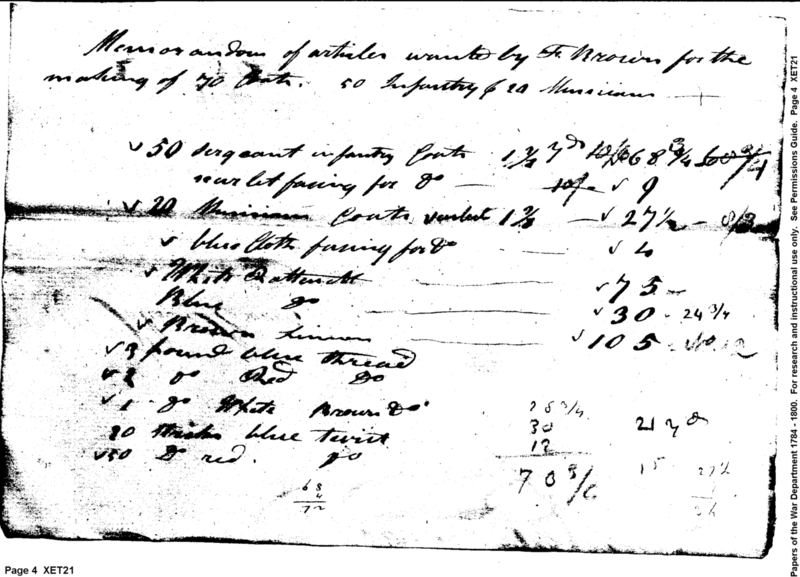 Memorandom of articles wanted by Fr Brown for the
making of 70 Coats. 50 Infantry & 20 Musicians
50 Sergeant infantry Coats 1 3/8 yds 68 3/4
scarlet facing for do 9
20 Musicians Coats scarlet 1 3/8 27 1/2
blue Cloth facing for do 4
White Rattinett 75
Blue do 30 24 3/4
Brown Linnen 105
3 pound blue thread
2 do Red do
1 do White Brown do
20 sticks blue twist
50 do red. do
30 21 yds
12 15
70
68
4
72
Page 4 XET21
Papers of the War Department 1784 - 1800. For research and instructional use only. See Permissions Guide. Page 4 XET21